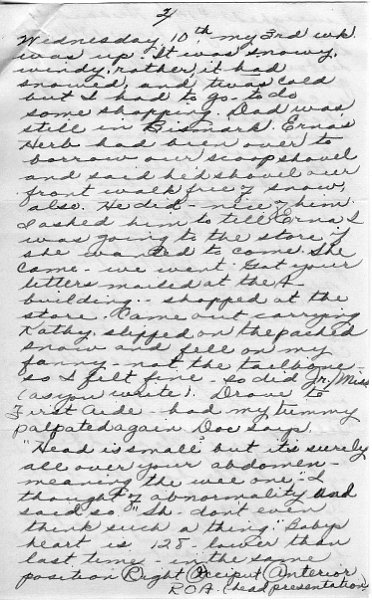 2/
Wednesday, 10th my 3rd wk
was up. It was snowy,
windy, rather, it had
snowed, and, twas cold
but I had to go to do
some shopping. Dad was
still in Bismark. Erna's
Herb had been over to
borrow our scoop shovel
and said he'd shovel our
front walk free of snow,
also. He did - nice of him.
I asked him to tell Erna I
was going to the store if
she wanted to come. She
came - we went. Got your
letters mailed at the A-
building - shopped at the
store. Came out carrying
Kathy, slipped on the packed
snow and fell on my
fanny - not the tailbone -
so I felt fine - so did Jr./Miss
(as you write). Drove to
First Aide - had my tummy
palpated again. Doc says,
"Head is small but it's surely
all over your abdomen -
meaning the wee one." I
thought of abnormality and
said so. "Sh - don't even
think such a thing." Babys
heart is 128 lower than
last time - in the same
position Right Occiput Anterior
R.O.A. (head presentation)